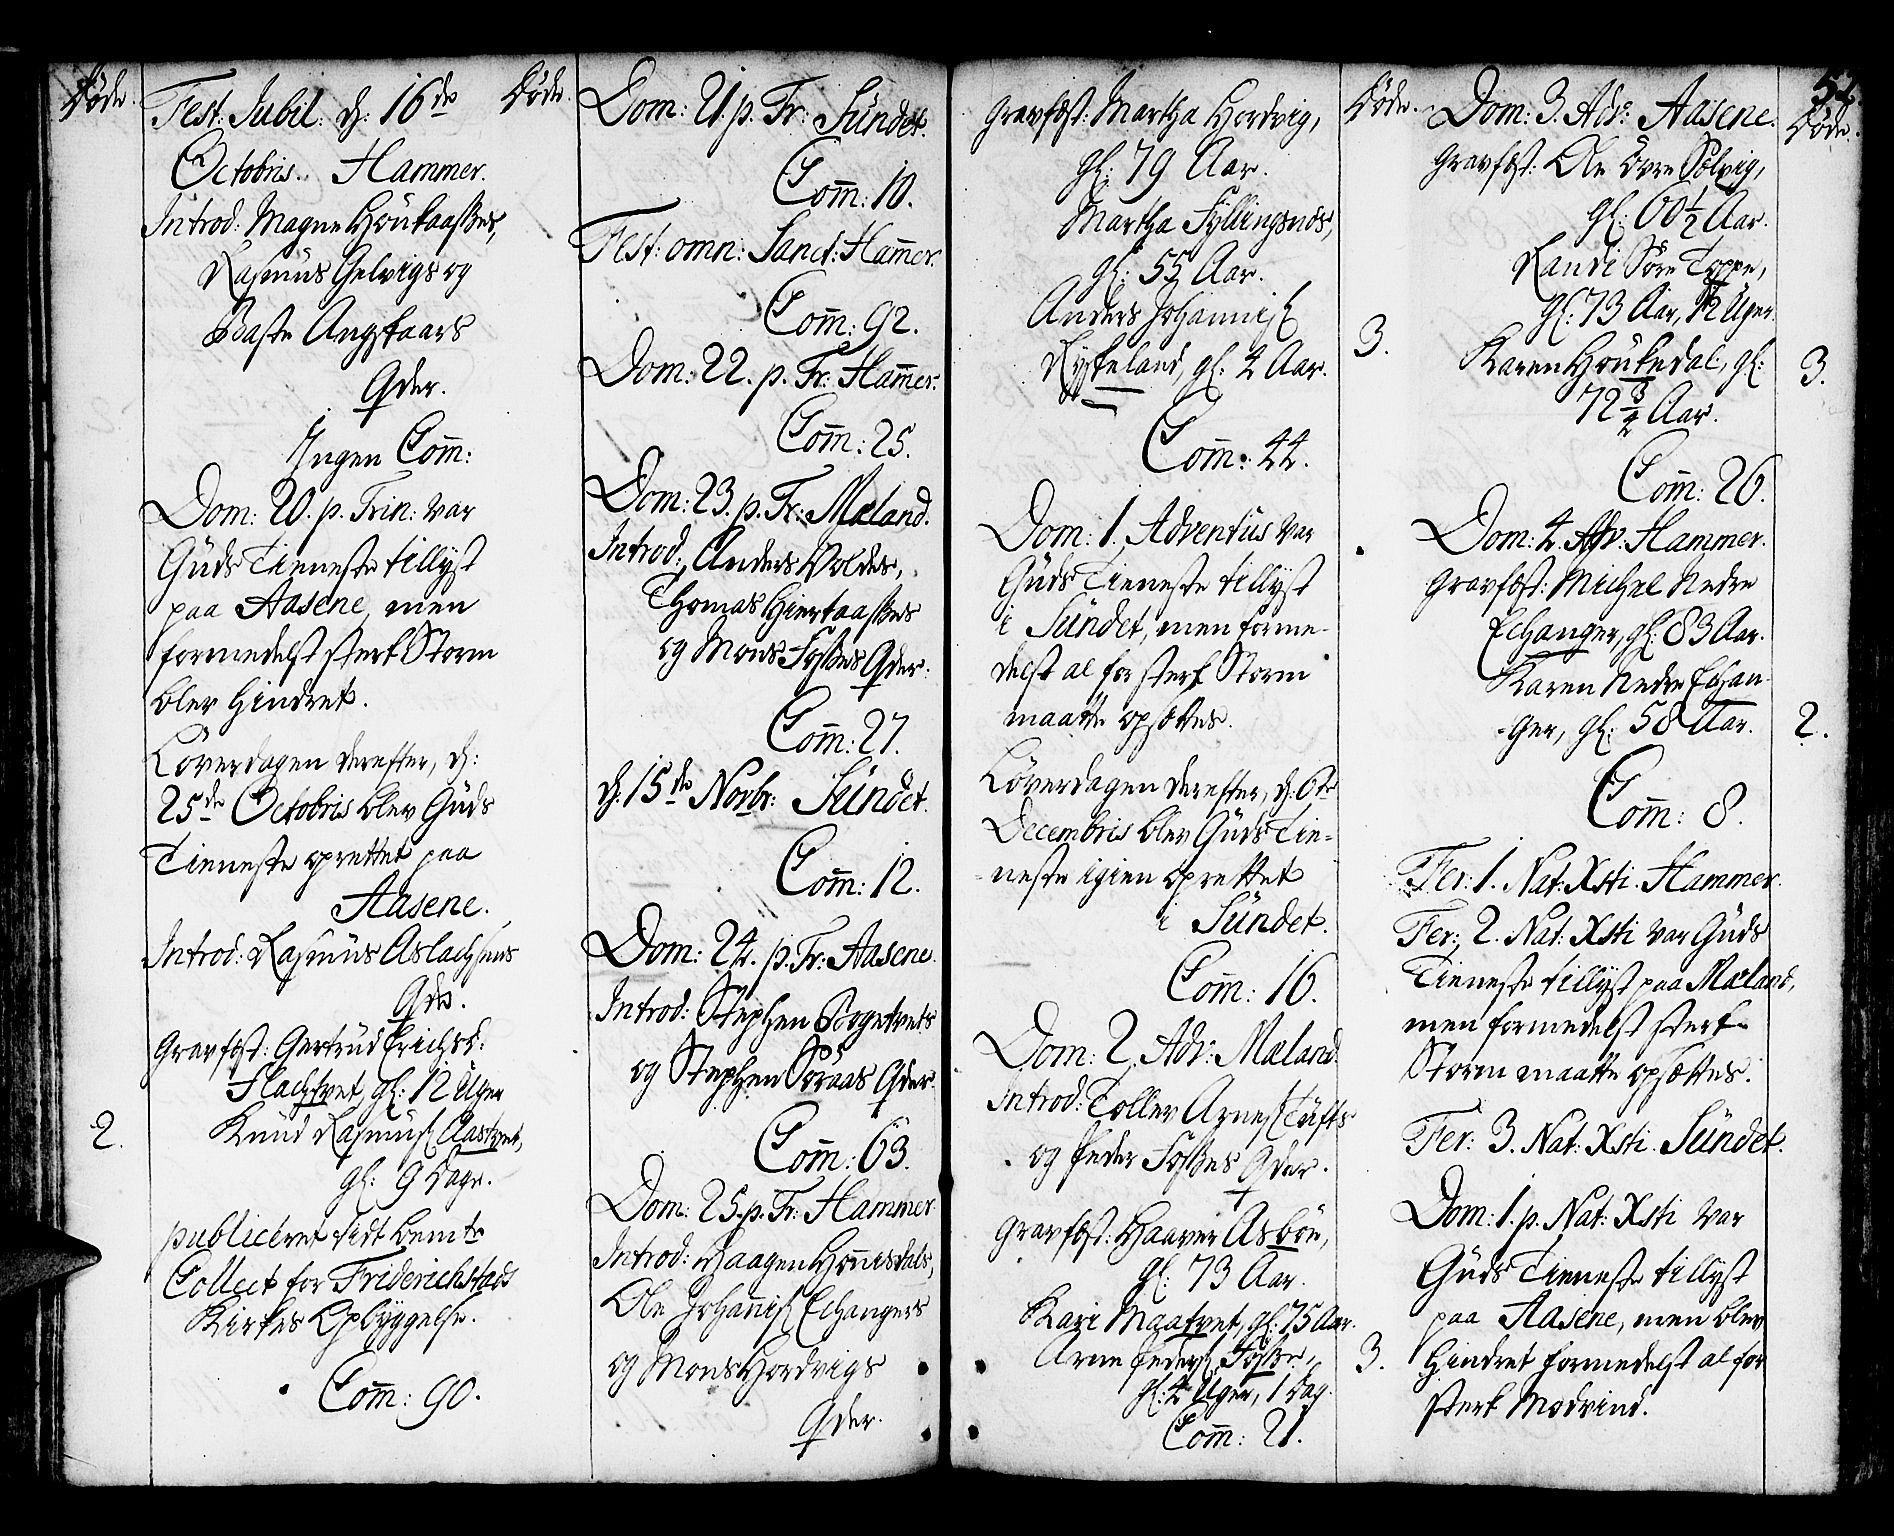 Døde.
Fest: Jubil: d: 16de
Octobris. Hammer.
Introd: Magne Höukaasßes,
Rasmus Gelvigs og
Baste Angskaars
Qder.
Ingen Com̄:
Dom: 20. p. Trin: var
Guds Tieneste tillyst
paa Aasene, men
formedelst sterk Storm
blev hindret.
Löverdagen derefter, d:
25de Octobris blev Guds
Tieneste oprettet paa
Aasene.
Introd: Rasmus Aslachsens
Qde.
Gravfæst: Gertrud Erichsd:
Flachtvet, gl: 12 Uger
Knud Rasmus: Aastvet,
2.
gl: 9 Dage.
publiceret sidt bemte
Collect for Friderichstads
Kirkes Opbyggelse.
Com̄: 90.
Døde.
Dom: 21. p. Tr: Sundet.
Com̄: 10.
Fest: omn: Sanct: Ham̄er.
Com̄: 92.
Dom: 22. p. Tr: Ham̄er.
Com̄: 25.
Dom: 23. p. Tr: Mæland.
Introd: Anders Voldes,
Thomas Hiertaasßes
og Mons Fosßes Qder.
Com̄: 27.
d: 15de Novbr: Sundet.
Com̄: 12.
Dom: 24. p. Tr: Aasene.
Introd: Stephen Bogetvets
og Stephen Söraas Qder.
Com̄: 63.
Dom: 25. p. Tr: Hammer
Introd: Haagen Hönisdals,
Ole Johan̄is: Echangers
og Mons Hordvigs
Qder.
Gravfæst: Martha Hordvig,
gl: 79 Aar.
Martha Syllingsnes,
gl: 55 Aar.
Anders Johannis:
Røskeland, gl: 4 Aar.
Døde.
3.
Com̄: 44.
Dom: 1. Adventus var
Guds Tieneste tillyst
i Sundet, men forme-
delst al for sterk Storm
maatte opsættes.
Löverdagen derefter, d: 6te
Decembris blev Guds Tie-
neste igien oprettet
i Sundet.
Com̄: 16.
Dom: 2. Adv: Mæland.
Introd: Tollev Arnes: Tufts
og Peder Fosßes Qder.
Gravfæst: Haaver Asböe,
gl: 73 Aar.
Kari Maatvet, gl: 75 Aar.
Arne Peders: Fosße,
3.
gl: 4 Uger, 1 Dag.
Com̄: 21.
52.
Døde.
Dom: 3. Adv: Aasene.
Gravfæst: Ole övre Solvig,
gl: 60 1/2 Aar.
Randi Söre Toppe,
gl: 73 Aar, 12 Uger.
Karen Höukedal, gl:
3.
72 3/4 Aar.
Com̄: 26.
Dom: 4. Adv: Hammer.
Gravfæst: Michel Nedre
Echanger, gl: 83 Aar.
Karen Nedre Echan-
ger, gl: 58 Aar.
2.
Com̄: 8.
Fer: 1. Nat: Xsti. Hammer.
Fer: 2. Nat: Xsti var Guds
Tieneste tillyst paa Mæland,
men formedelst sterk
Storm maatte opsættes.
Fer: 3. Nat: Xsti. Sundet.
Dom: 1. p. Nat: Xsti var
Guds Tieneste tillyst
paa Aasene, men blev
hindret formedelst al for
sterk Modvind.